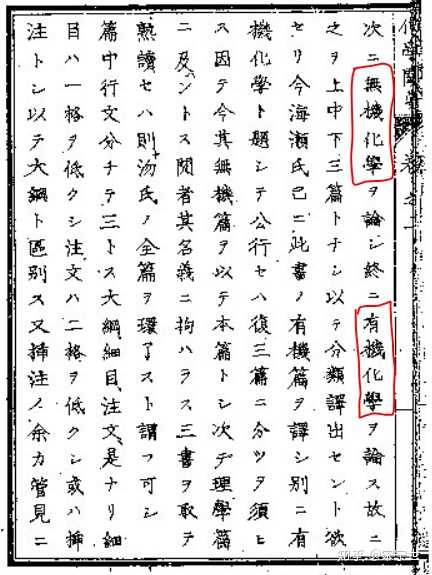 次ニ無機化學ヲ論シ終ニ有機化學ヲ論ス故ニ
之ヲ上中下三篇トナシ以テ分類譯出セント欲
セリ今海瀬氏已ニ此書ノ有機篇ヲ譯シ別ニ有
機化學ト題シテ公行セハ復三篇ニ分ツヲ須ヒ
ス因テ今其無機篇ヲ以テ本篇トシ次デ理學篇
ニ及ントス閲者其名義ニ拘ハラス三書ヲ取テ
熟讀セハ則氏ノ全篇ヲ環了スト謂フ可シ
篇中行文分チテ三トス大綱細目注文是ナリ細
目ハ一格ヲ低クシ注文ハ二格ヲ低クシ或ハ挿
注トシ以テ大綱ト區別ス又挿注ノ余カ管見ニ
卷之一
知乎